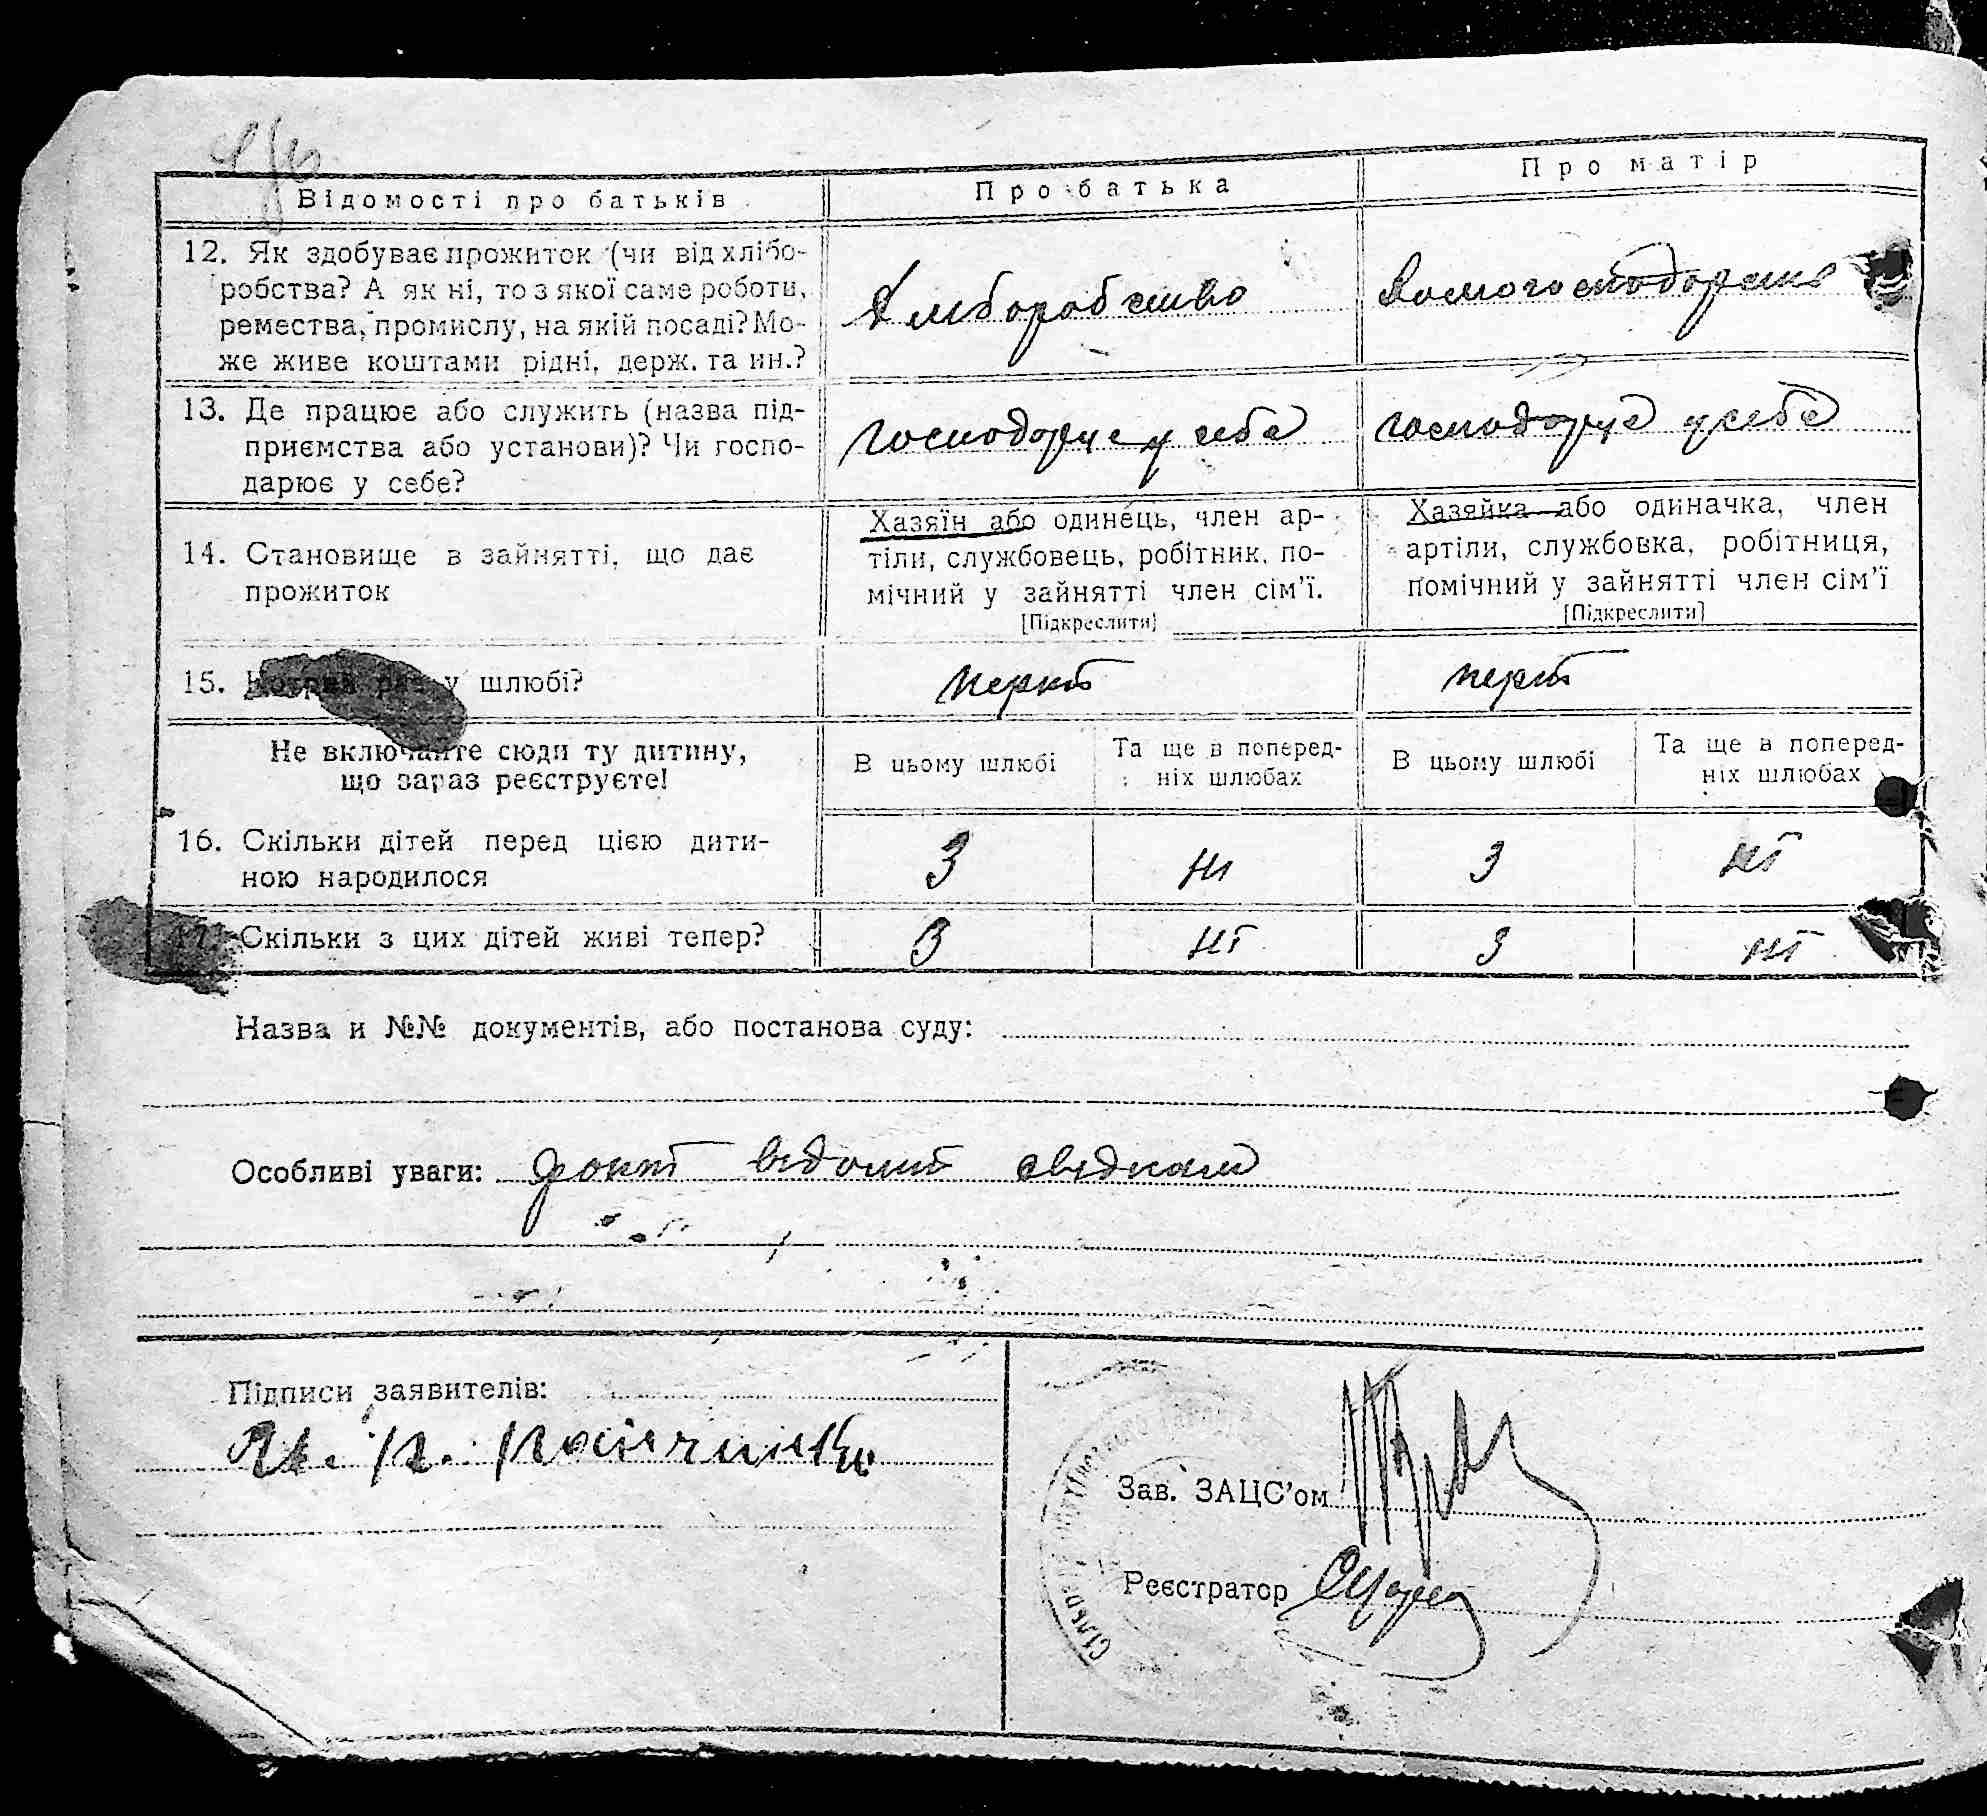 Відомості про батьків
Про батька
Про матір
12. Як здобуває прожиток (чи від хлібо-
робства? А як ні, то з якої саме роботи,
ремества, промислу, на якій посаді? Мо-
же живе коштами рідні, держ. та ин.?
Хліборобство
домогосподарство
13. Де працює або служить (назва під-
приємства або установи)? Чи госпо-
дарює у себе?
господарує у себе
господарує у себе
14. Становище в зайнятті, що дає
прожиток
Хазяїн або одинець, член ар-
тіли, службовець, робітник, по-
мічний у зайнятті член сім’ї.
[Підкреслити]
Хазяйка або одиначка, член
артіли, службовка, робітниця,
помічний у зайнятті член сім’ї
[Підкреслити]
15. Котрий раз у шлюбі?
Не включайте сюди ту дитину,
що зараз реєструєте!
В цьому шлюбі
Та ще в поперед-
ніх шлюбах
В цьому шлюбі
Та ще в поперед-
ніх шлюбах
16. Скільки дітей перед цією дити-
ною народилося
3
ні
3
ні
17. Скільки з цих дітей живі тепер?
3
ні
3
ні
Назва и №№ документів, або постанова суду:
Особливі уваги: факт відомий свідкам
Підписи заявителів:
Зав. ЗАЦС’ом
Реєстратор